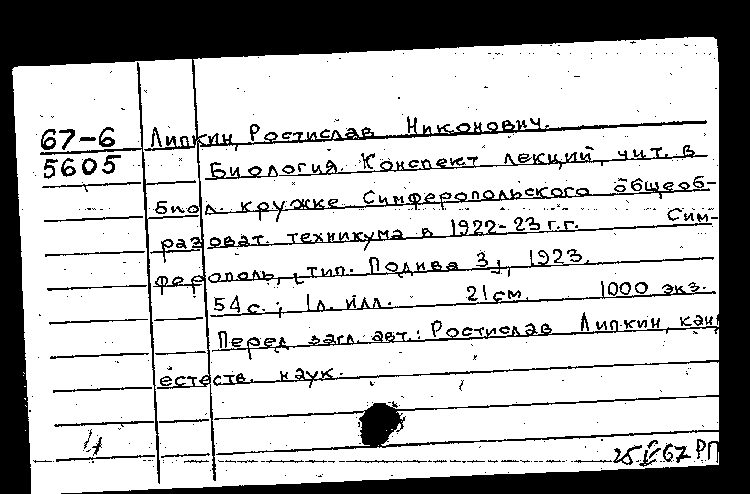 67-6 Липкин, Ростислав Никонович.
5605 Биология. Конспект лекций, чит. в
биол. кружке Симферопольского общеоб-
разоват. техникума в 1922-23 г.г. Сим-
ферополь, [тип. Подива 3], 1923.
54 с.; 1 л. илл. 21 см. 1000 экз.
Перед загл. авт.: Ростислав Липкин, канд
естеств. наук.
67 РП